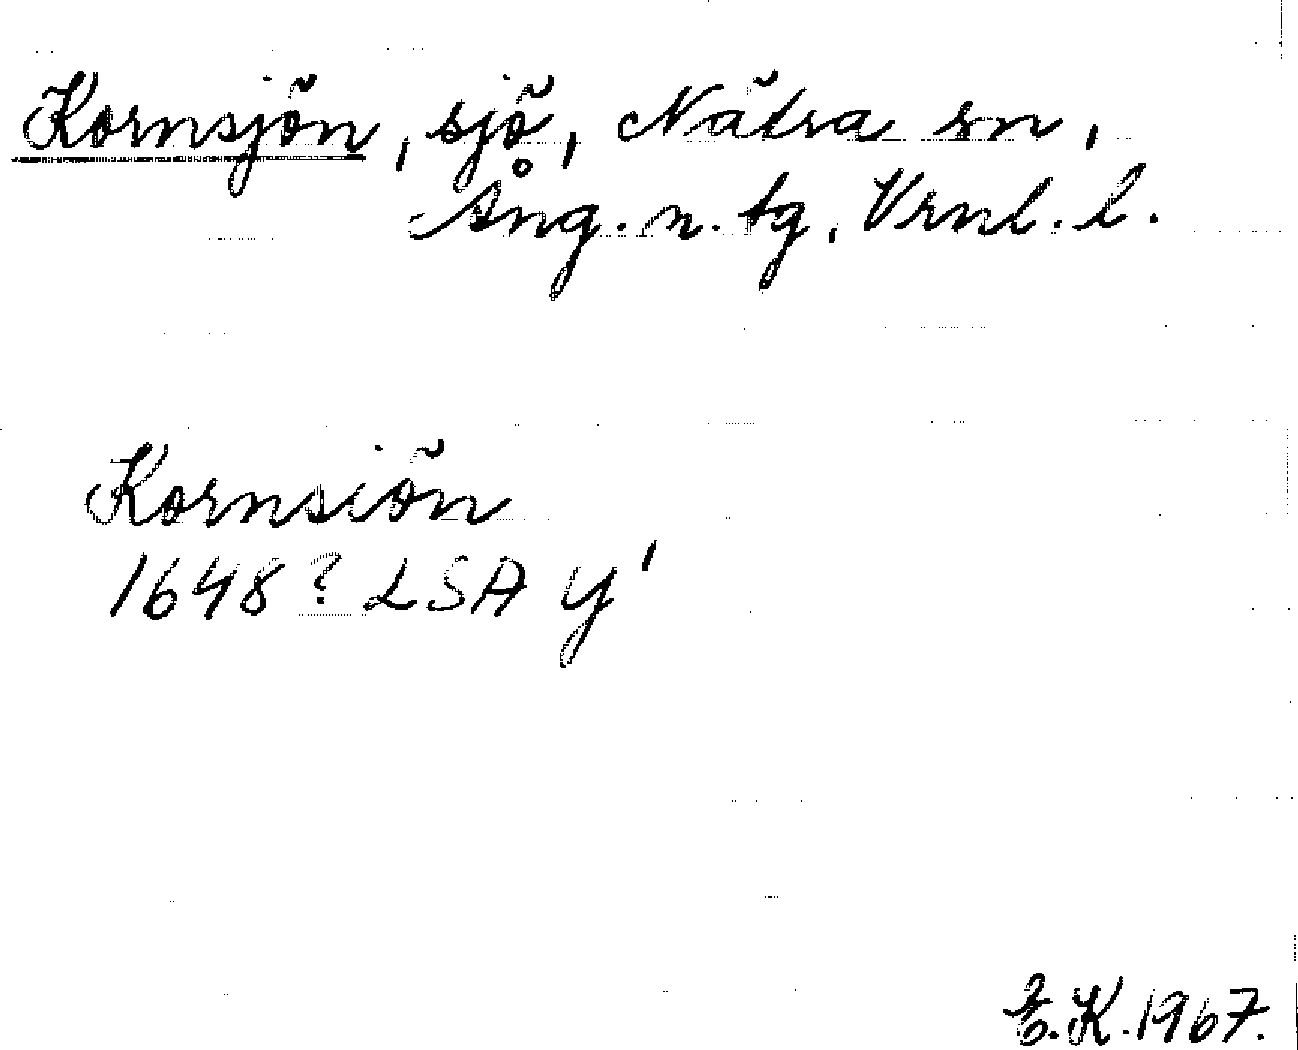 Kornsjön, sjö, Nätra sn,
Ång. n. tg, Vrnl. l.
Kornsiön
1648? LSA Y'
K. 1967.